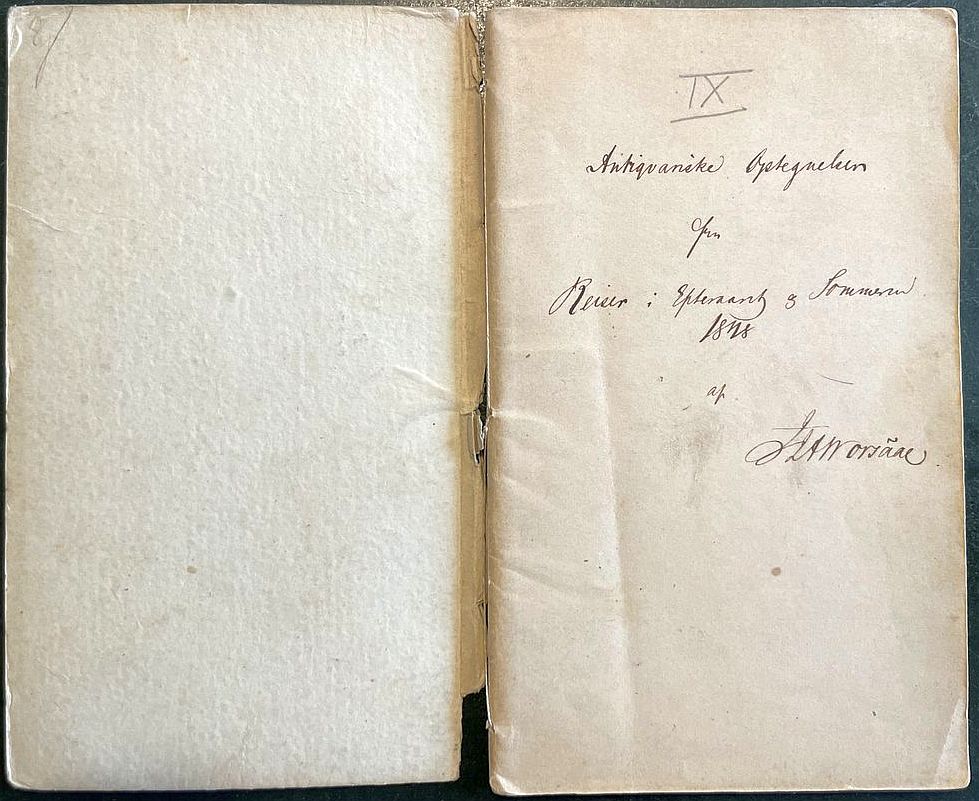 8/
IX
Antiqvariske Optegnelser
fra
Reiser i Efteraaret og Sommeren
1848
af
JJAWorsaae